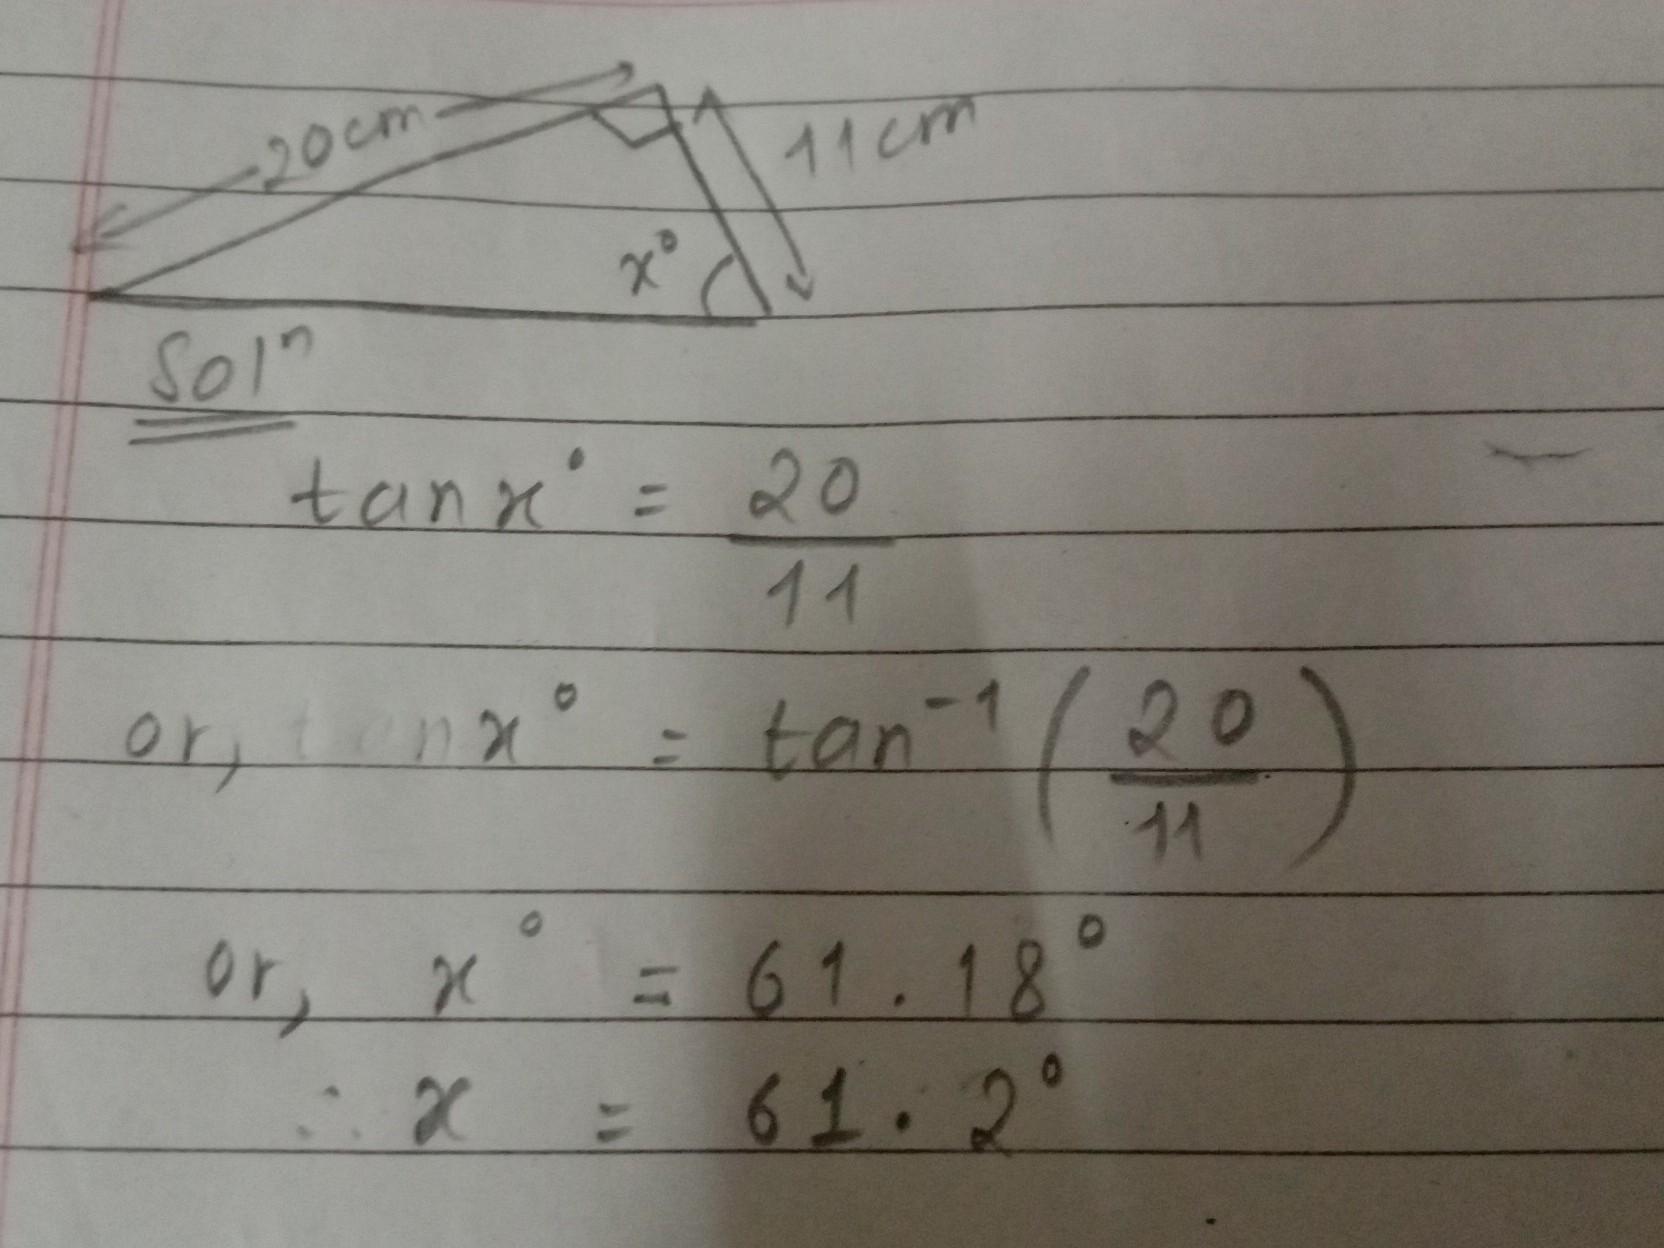 20cm
11cm
x°
Solⁿ
tan x° = 20/11
or, x° = tan⁻¹ (20/11)
or, x° = 61.18°
∴ x = 61.2°